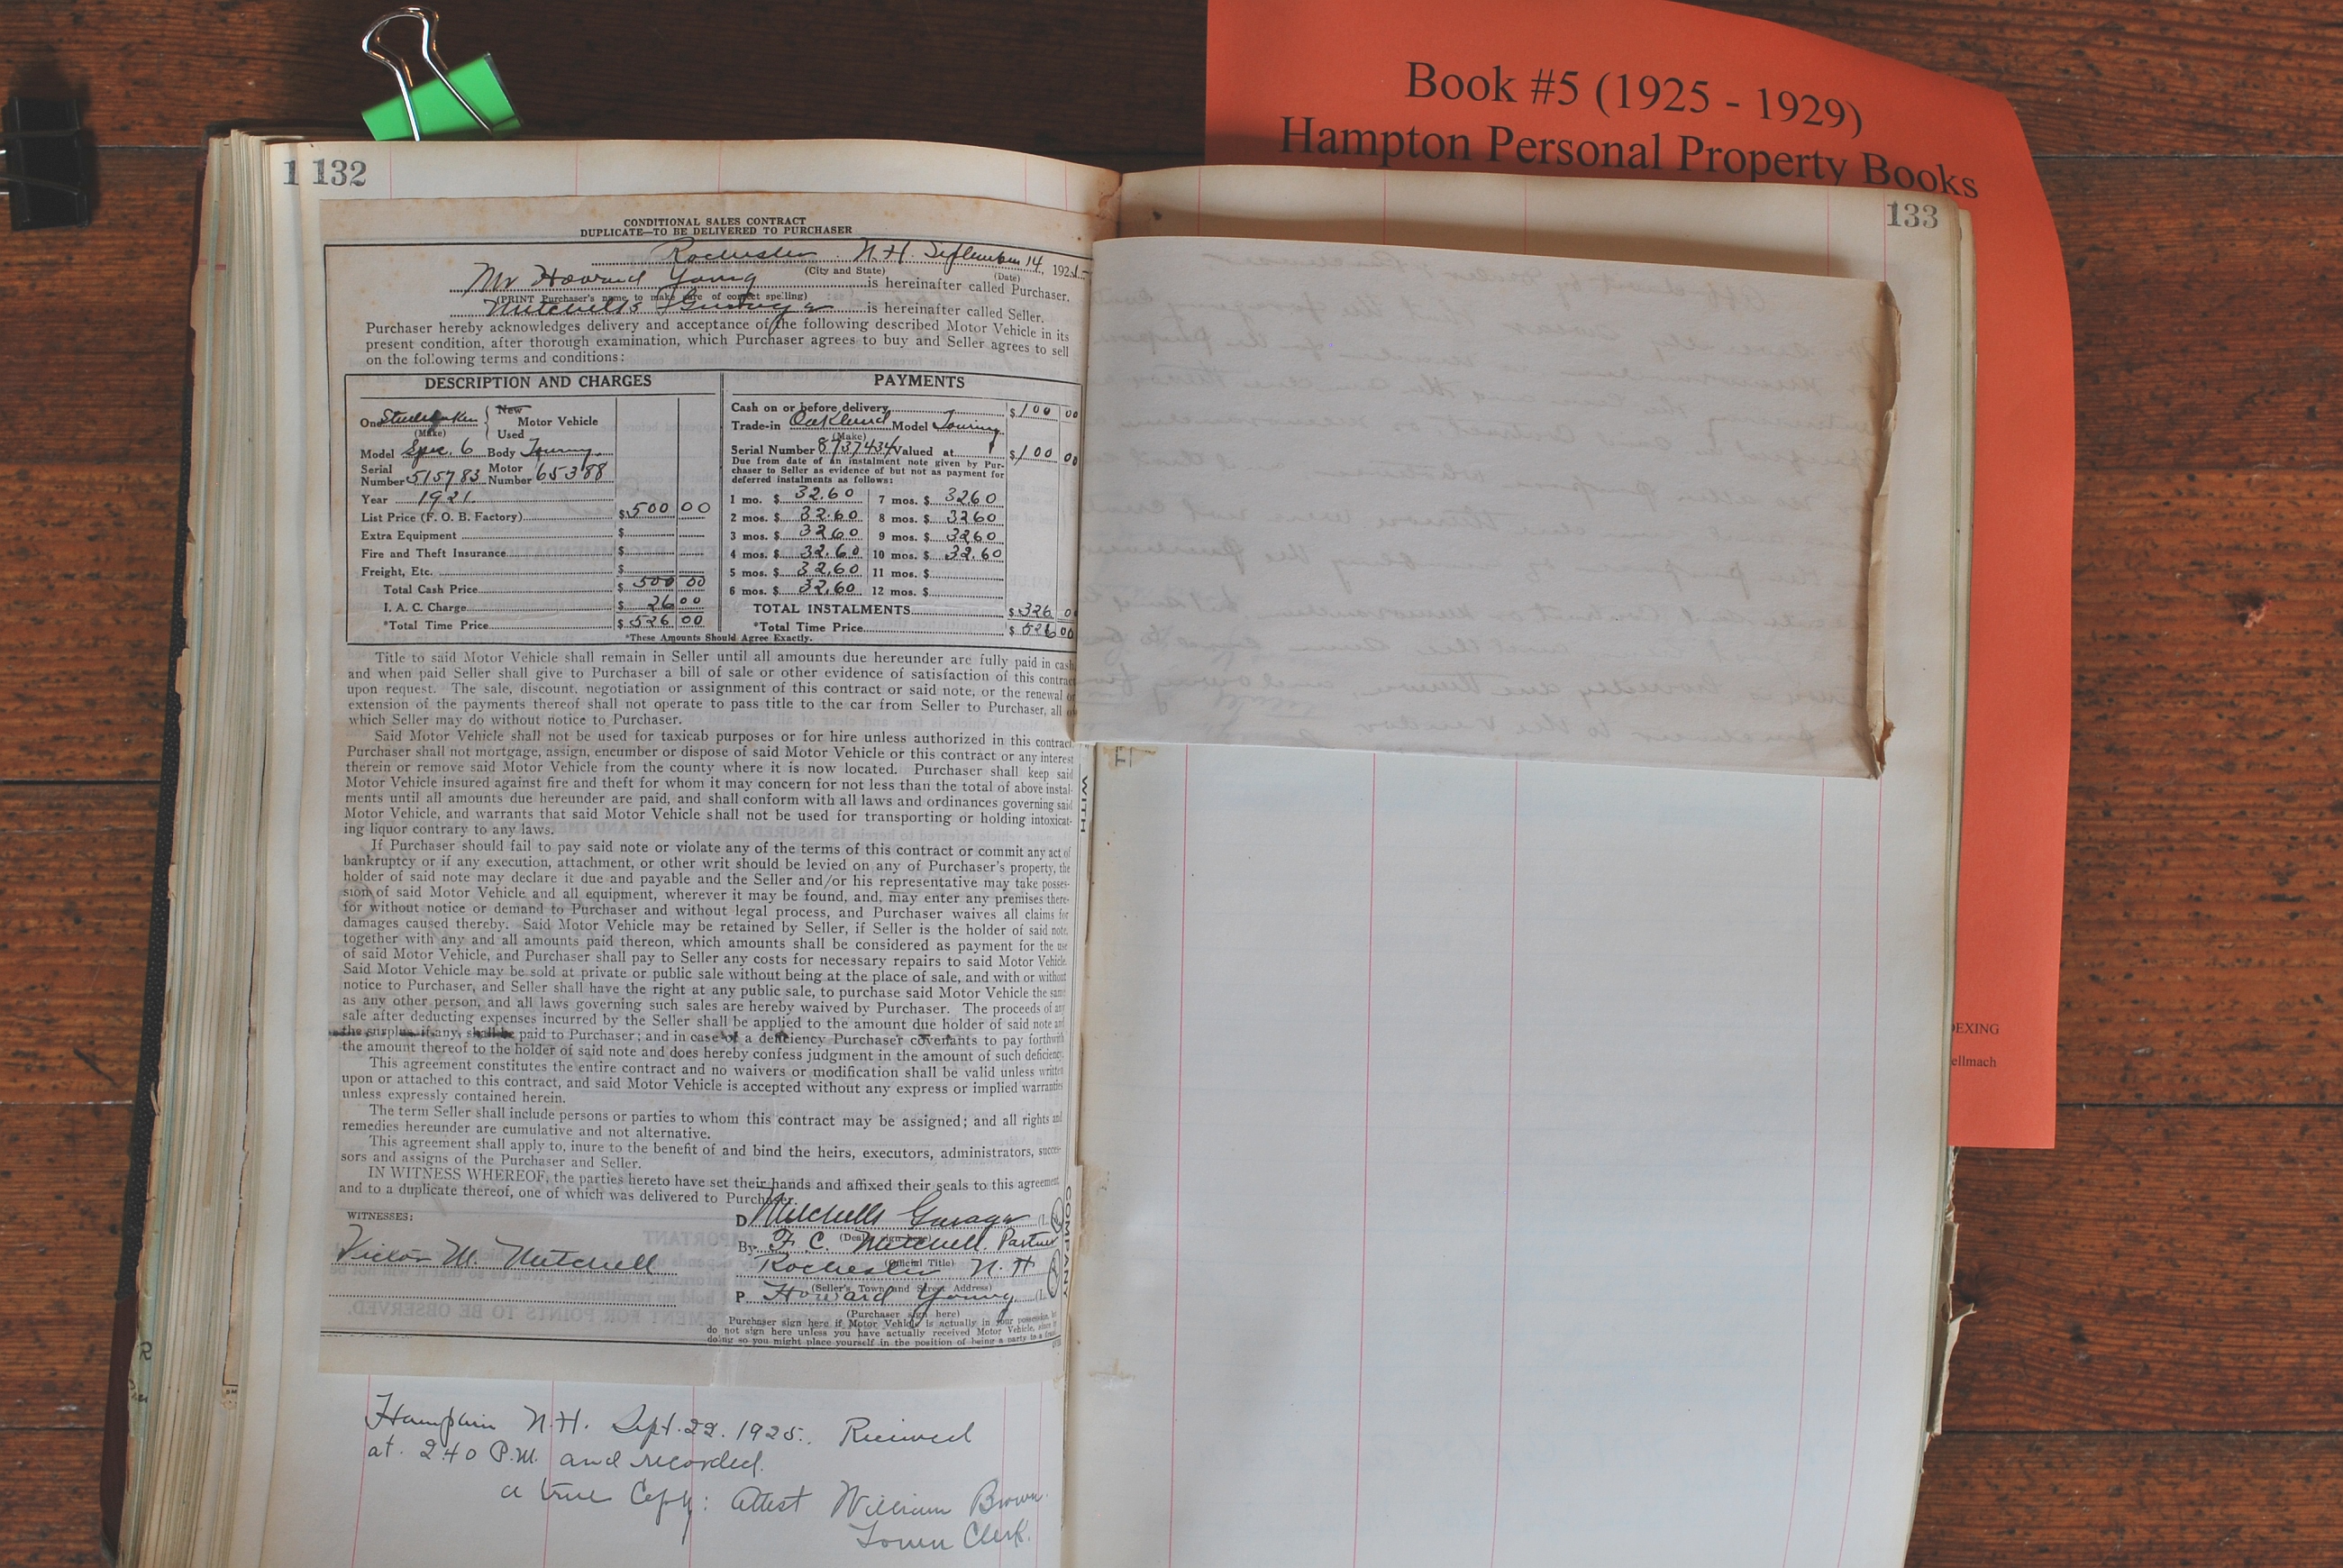 Book #5 (1925 - 1929)
Hampton Personal Property Books
1 132
133
CONDITIONAL SALES CONTRACT
DUPLICATE—TO BE DELIVERED TO PURCHASER
Rochester N.H. September 14, 192
(City and State) (Date)
Mr Howard Young is hereinafter called Purchaser.
(PRINT Purchaser's name to make sure of correct spelling)
Mitchells Garage is hereinafter called Seller.
Purchaser hereby acknowledges delivery and acceptance of the following described Motor Vehicle in its
present condition, after thorough examination, which Purchaser agrees to buy and Seller agrees to sell
on the following terms and conditions:
DESCRIPTION AND CHARGES
One Studebaker New Motor Vehicle
(Make) Used
Model Spec. 6 Body Touring
Serial Number 515783 Motor Number 65388
Year 1921
List Price (F. O. B. Factory) $ 500 00
Extra Equipment $
Fire and Theft Insurance $
Freight, Etc. $
Total Cash Price $ 500 00
I. A. C. Charge $ 26 00
*Total Time Price $ 526 00
PAYMENTS
Cash on or before delivery $ 100 00
Trade-in Oakland Model Touring
(Make)
Serial Number 8737434 Valued at $ 100 00
Due from date of an instalment note given by Pur-
chaser to Seller as evidence of but not as payment for
deferred instalments as follows:
1 mo. $ 32.60 7 mos. $ 32.60
2 mos. $ 32.60 8 mos. $ 32.60
3 mos. $ 32.60 9 mos. $ 32.60
4 mos. $ 32.60 10 mos. $ 32.60
5 mos. $ 32.60 11 mos. $
6 mos. $ 32.60 12 mos. $
TOTAL INSTALMENTS $ 326 0
*Total Time Price $ 526 00
*These Amounts Should Agree Exactly.
Title to said Motor Vehicle shall remain in Seller until all amounts due hereunder are fully paid in cash
and when paid Seller shall give to Purchaser a bill of sale or other evidence of satisfaction of this contract
upon request. The sale, discount, negotiation or assignment of this contract or said note, or the renewal or
extension of the payments thereof shall not operate to pass title to the car from Seller to Purchaser, all of
which Seller may do without notice to Purchaser.
Said Motor Vehicle shall not be used for taxicab purposes or for hire unless authorized in this contract.
Purchaser shall not mortgage, assign, encumber or dispose of said Motor Vehicle or this contract or any interest
therein or remove said Motor Vehicle from the county where it is now located. Purchaser shall keep said
Motor Vehicle insured against fire and theft for whom it may concern for not less than the total of above instal-
ments until all amounts due hereunder are paid, and shall conform with all laws and ordinances governing said
Motor Vehicle, and warrants that said Motor Vehicle shall not be used for transporting or holding intoxicat-
ing liquor contrary to any laws.
If Purchaser should fail to pay said note or violate any of the terms of this contract or commit any act of
bankruptcy or if any execution, attachment, or other writ should be levied on any of Purchaser's property, the
holder of said note may declare it due and payable and the Seller and/or his representative may take posses-
sion of said Motor Vehicle and all equipment, wherever it may be found, and, may enter any premises there-
for without notice or demand to Purchaser and without legal process, and Purchaser waives all claims for
damages caused thereby. Said Motor Vehicle may be retained by Seller, if Seller is the holder of said note,
together with any and all amounts paid thereon, which amounts shall be considered as payment for the use
of said Motor Vehicle, and Purchaser shall pay to Seller any costs for necessary repairs to said Motor Vehicle.
Said Motor Vehicle may be sold at private or public sale without being at the place of sale, and with or without
notice to Purchaser, and Seller shall have the right at any public sale, to purchase said Motor Vehicle the same
as any other person, and all laws governing such sales are hereby waived by Purchaser. The proceeds of any
sale after deducting expenses incurred by the Seller shall be applied to the amount due holder of said note and
the surplus if any, shall be paid to Purchaser; and in case of a deficiency Purchaser covenants to pay forthwith
the amount thereof to the holder of said note and does hereby confess judgment in the amount of such deficiency.
This agreement constitutes the entire contract and no waivers or modification shall be valid unless written
upon or attached to this contract, and said Motor Vehicle is accepted without any express or implied warranties
unless expressly contained herein.
The term Seller shall include persons or parties to whom this contract may be assigned; and all rights and
remedies hereunder are cumulative and not alternative.
This agreement shall apply to, inure to the benefit of and bind the heirs, executors, administrators, succes-
sors and assigns of the Purchaser and Seller.
IN WITNESS WHEREOF, the parties hereto have set their hands and affixed their seals to this agreement
and to a duplicate thereof, one of which was delivered to Purchaser.
WITNESSES:
Victor M. Mitchell
D Mitchells Garage (L.
(Dealer sign here)
By F. C. Mitchell. Partner
(Official Title)
Rochester N. H
(Seller's Town and Street Address)
P. Howard Young (L.
(Purchaser sign here)
Purchaser sign here if Motor Vehicle is actually in your possession, but
do not sign here unless you have actually received Motor Vehicle, since in
doing so you might place yourself in the position of being a party to a fraud
WITH
COMPANY
Hampton N.H. Sept. 22. 1925. Received
at 2.40 P.M. and recorded.
a true Copy: Attest William Brown
Town Clerk.
DEXING
ellmach